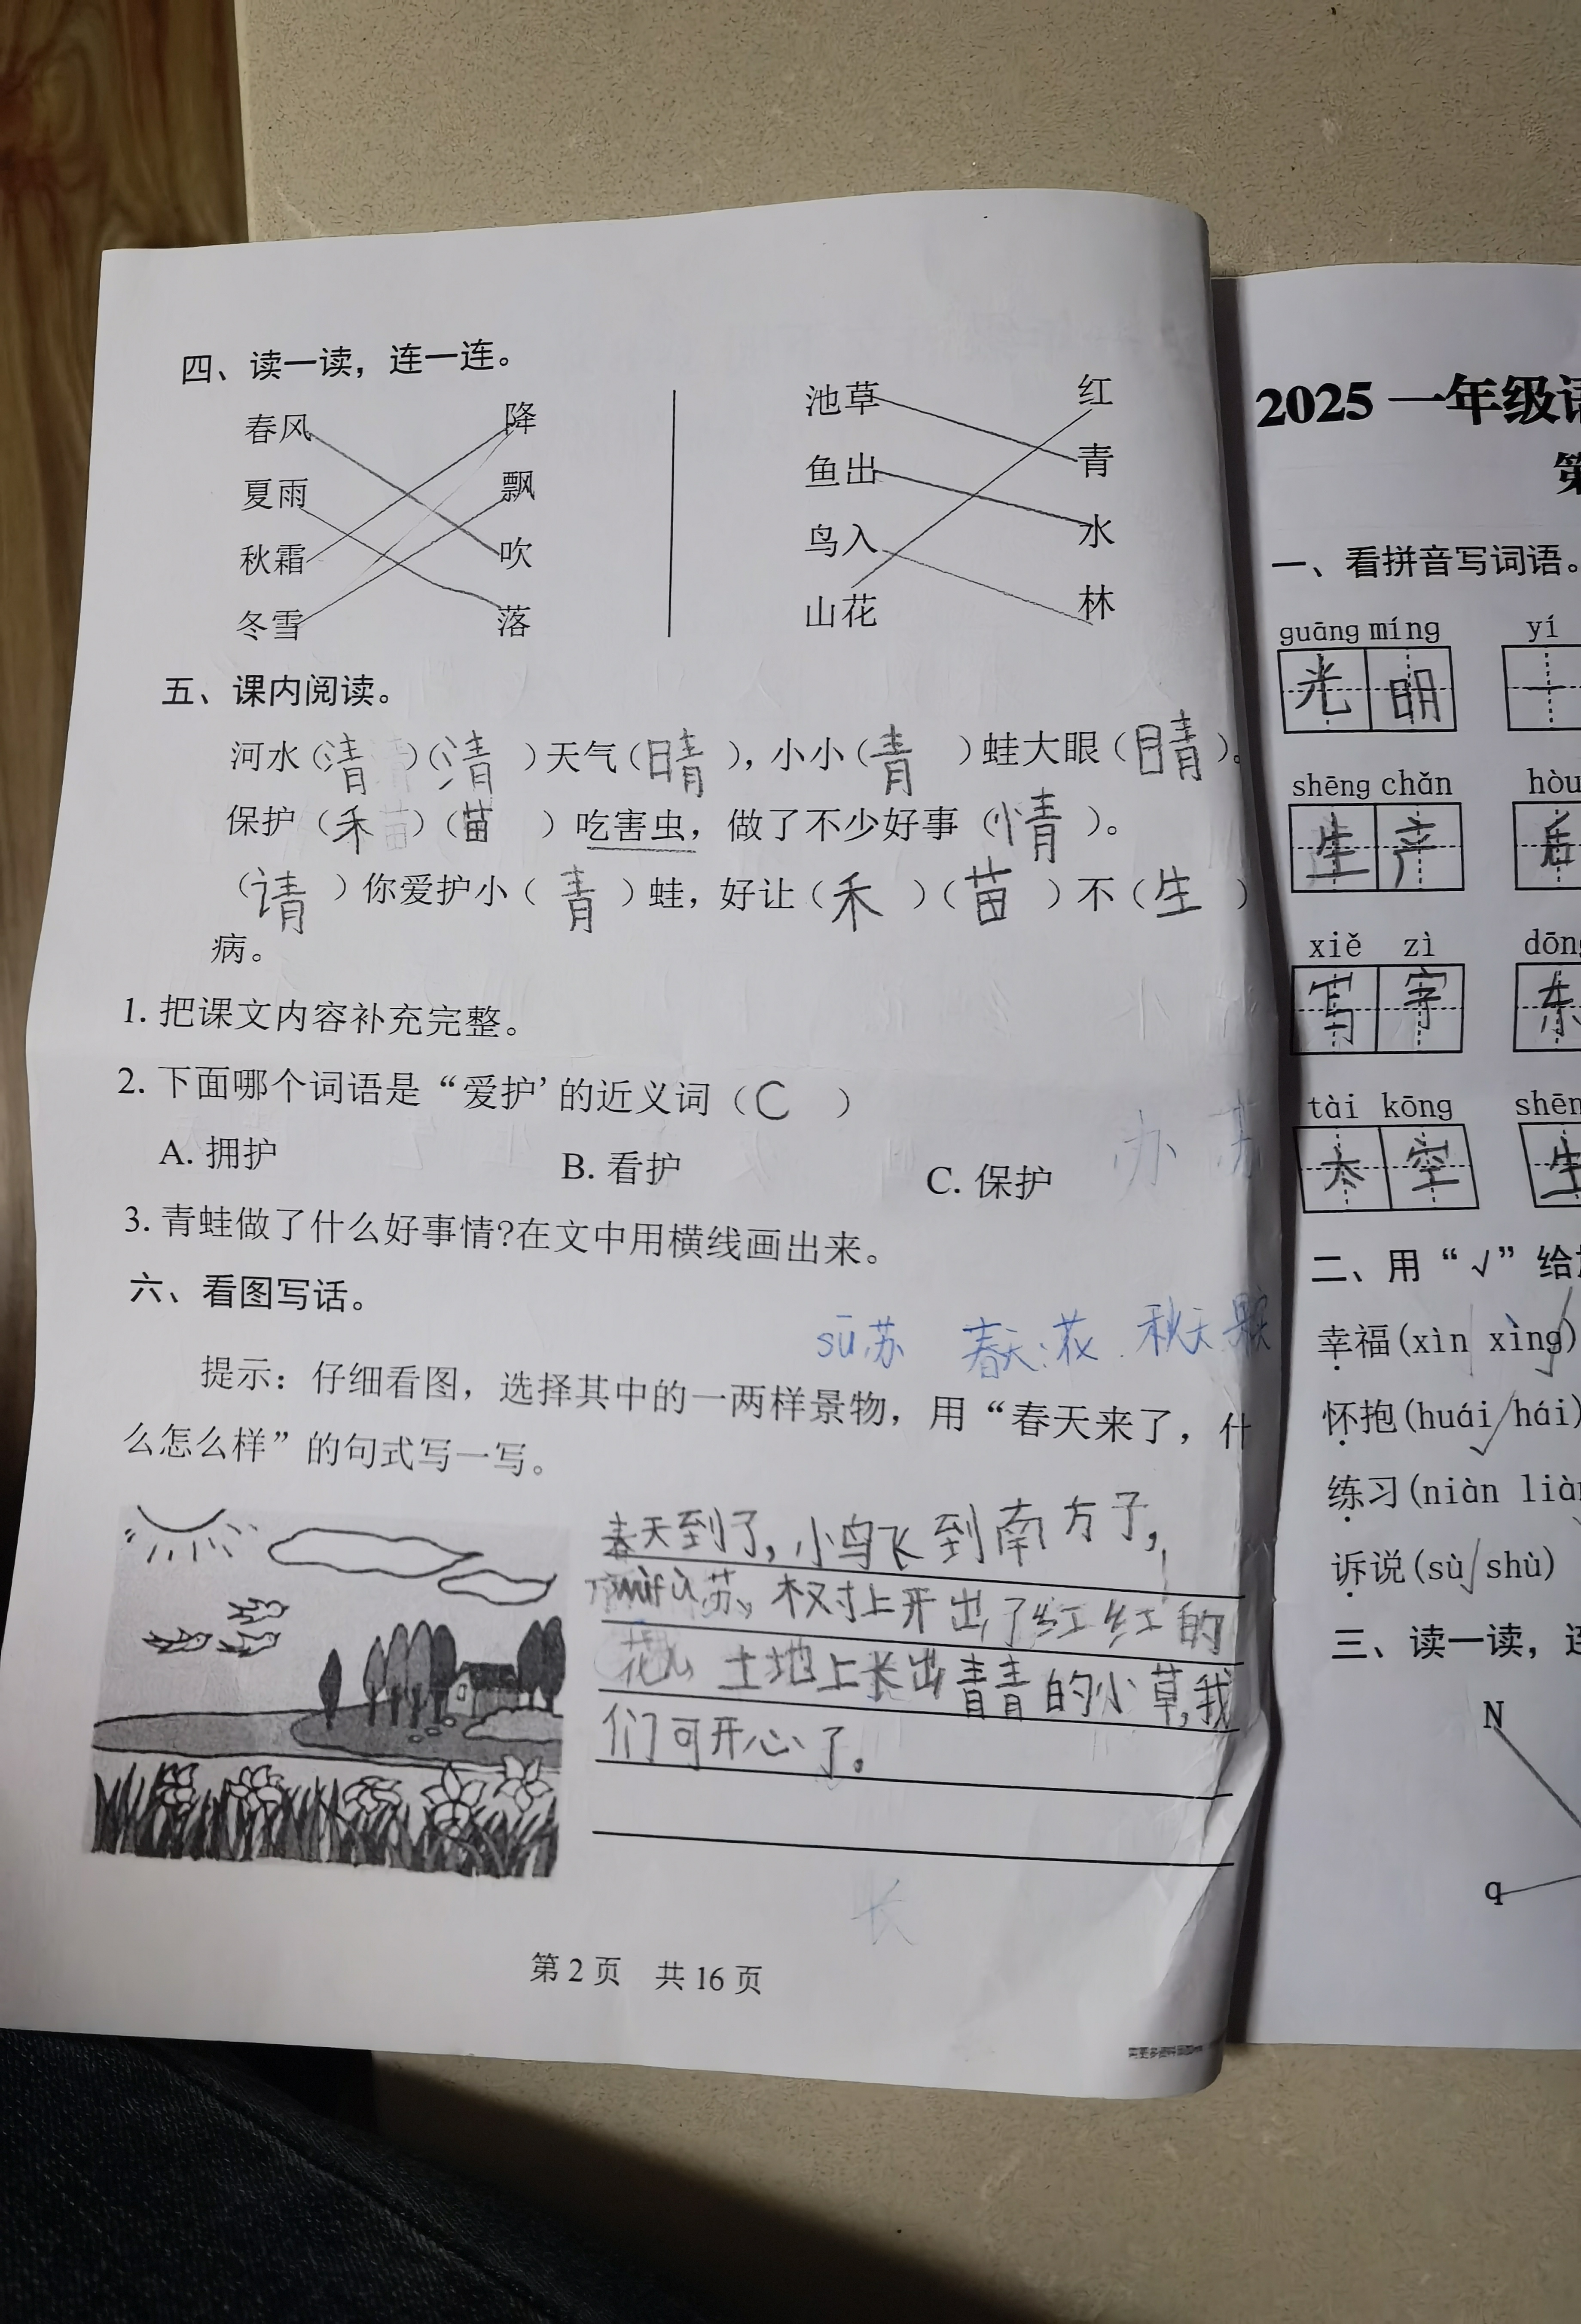 四、读一读，连一连。
春风 降
夏雨 飘
秋霜 吹
冬雪 落
池草 红
鱼出 青
鸟入 水
山花 林
五、课内阅读。
河水（清）（清）天气（晴），小小（青）蛙大眼（睛）。
保护（禾）（苗）吃害虫，做了不少好事（情）。
（请）你爱护小（青）蛙，好让（禾）（苗）不（生）
病。
1. 把课文内容补充完整。
2. 下面哪个词语是“爱护’的近义词（C）
A. 拥护 B. 看护 C. 保护
办 苏
3. 青蛙做了什么好事情?在文中用横线画出来。
六、看图写话。
sū苏 春天:花 秋天:果
提示：仔细看图，选择其中的一两样景物，用“春天来了，什
么怎么样”的句式写一写。
春天到了,小鸟飞到南方了,
苏 树上开出了红红的
花 土地上长出青青的小草,我
们可开心了。
长
第 2 页 共 16 页
2025 一年级语
第
一、看拼音写词语。
guāng míng yí
光明 一
shēng chǎn hòu
生产 后
xiě zì dōng
写字 东
tài kōng shēn
太空 生
二、用“√”给加
幸福(xìn xìng)
怀抱(huái hái)
练习(niàn liàn
诉说(sù shù)
三、读一读，连
N
q